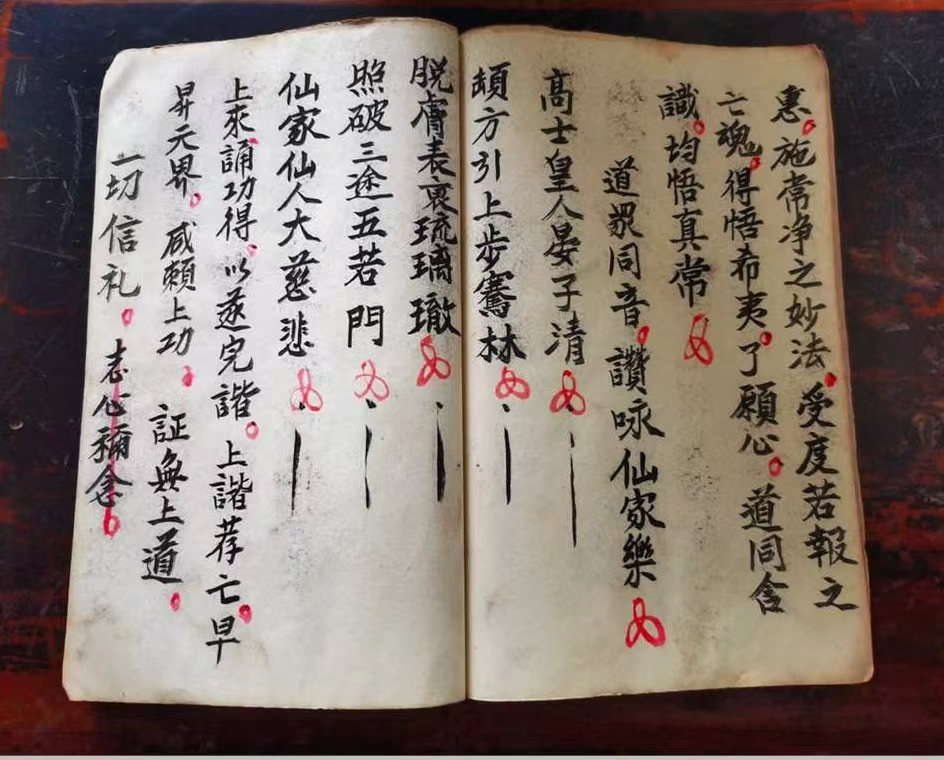 惠施常净之妙法受度若報之
亡魂得悟希夷了願心道同含
識均悟真常
道眾同音讚咏仙家樂
高士皇人晏子清
頡方引上步騫林
脱膚表裏琉璃徹
照破三途五若門
仙家仙人大慈悲
上來誦功得以遂完諧上諧荐亡早
昇元界咸賴上功証無上道
一切信礼志心稱念